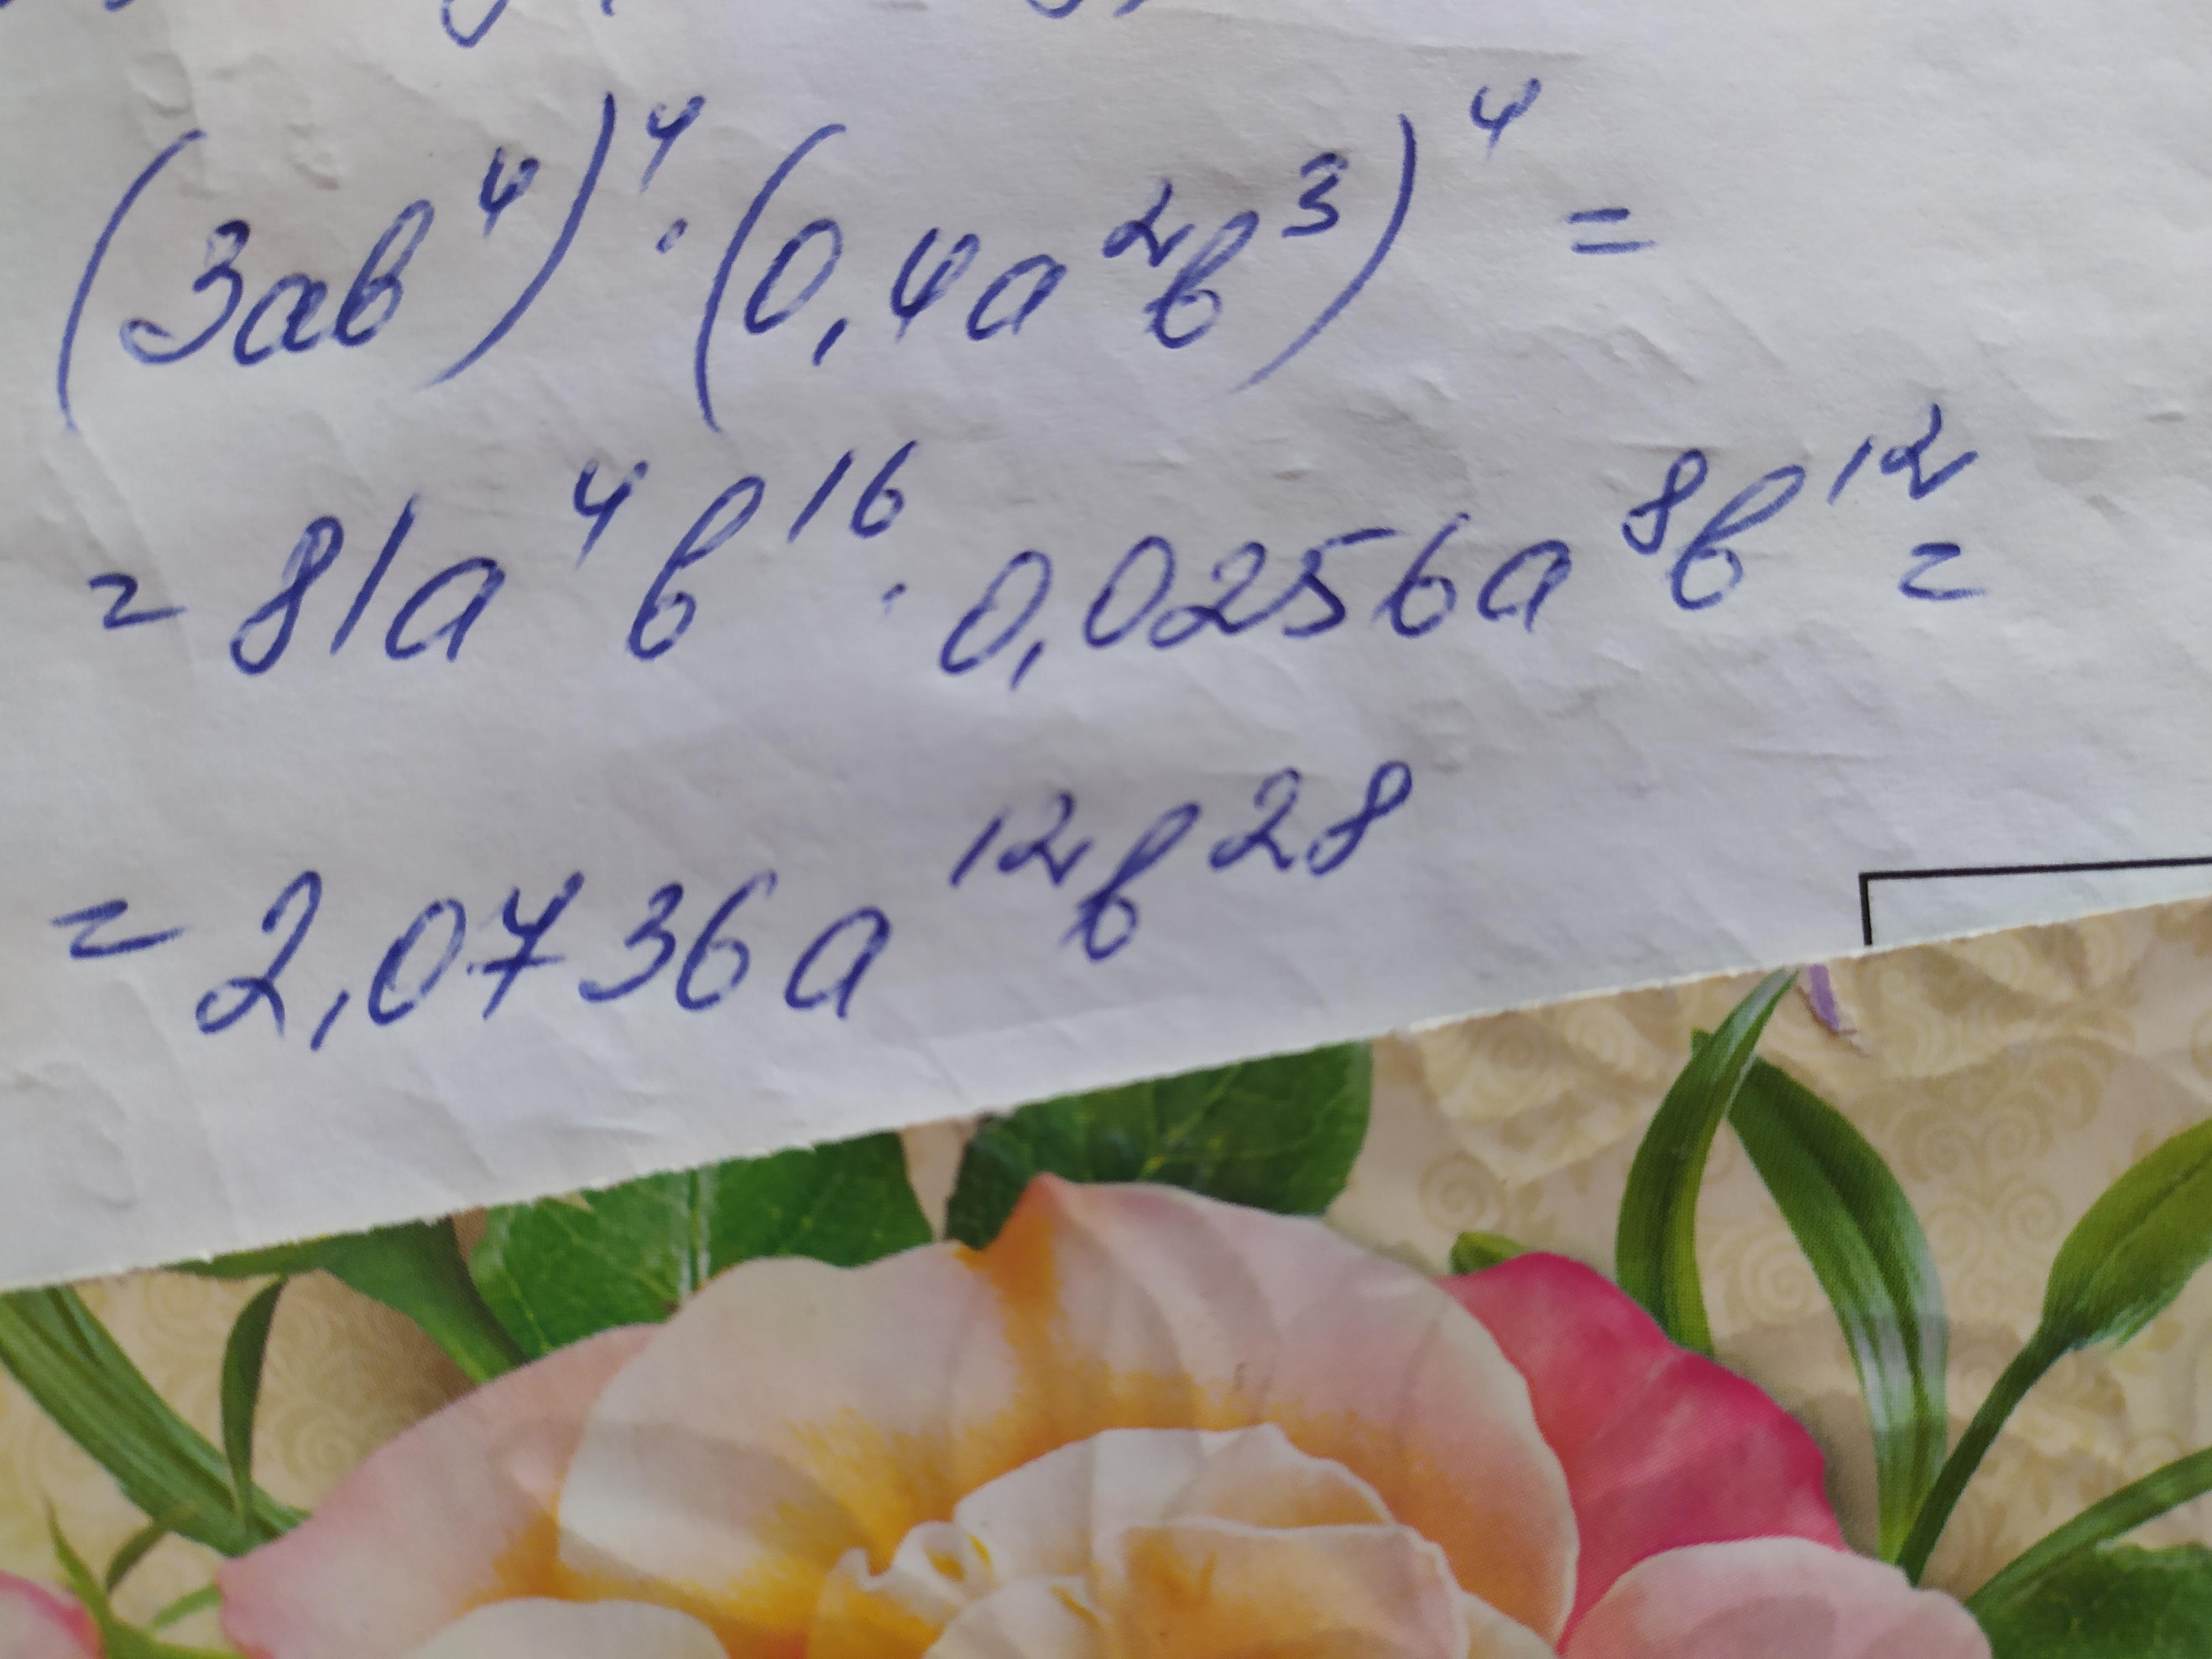 (3ab⁴)⁴ · (0,4a²b³)⁴ =
= 81a⁴b¹⁶ · 0,0256a⁸b¹² =
= 2,0736a¹²b²⁸